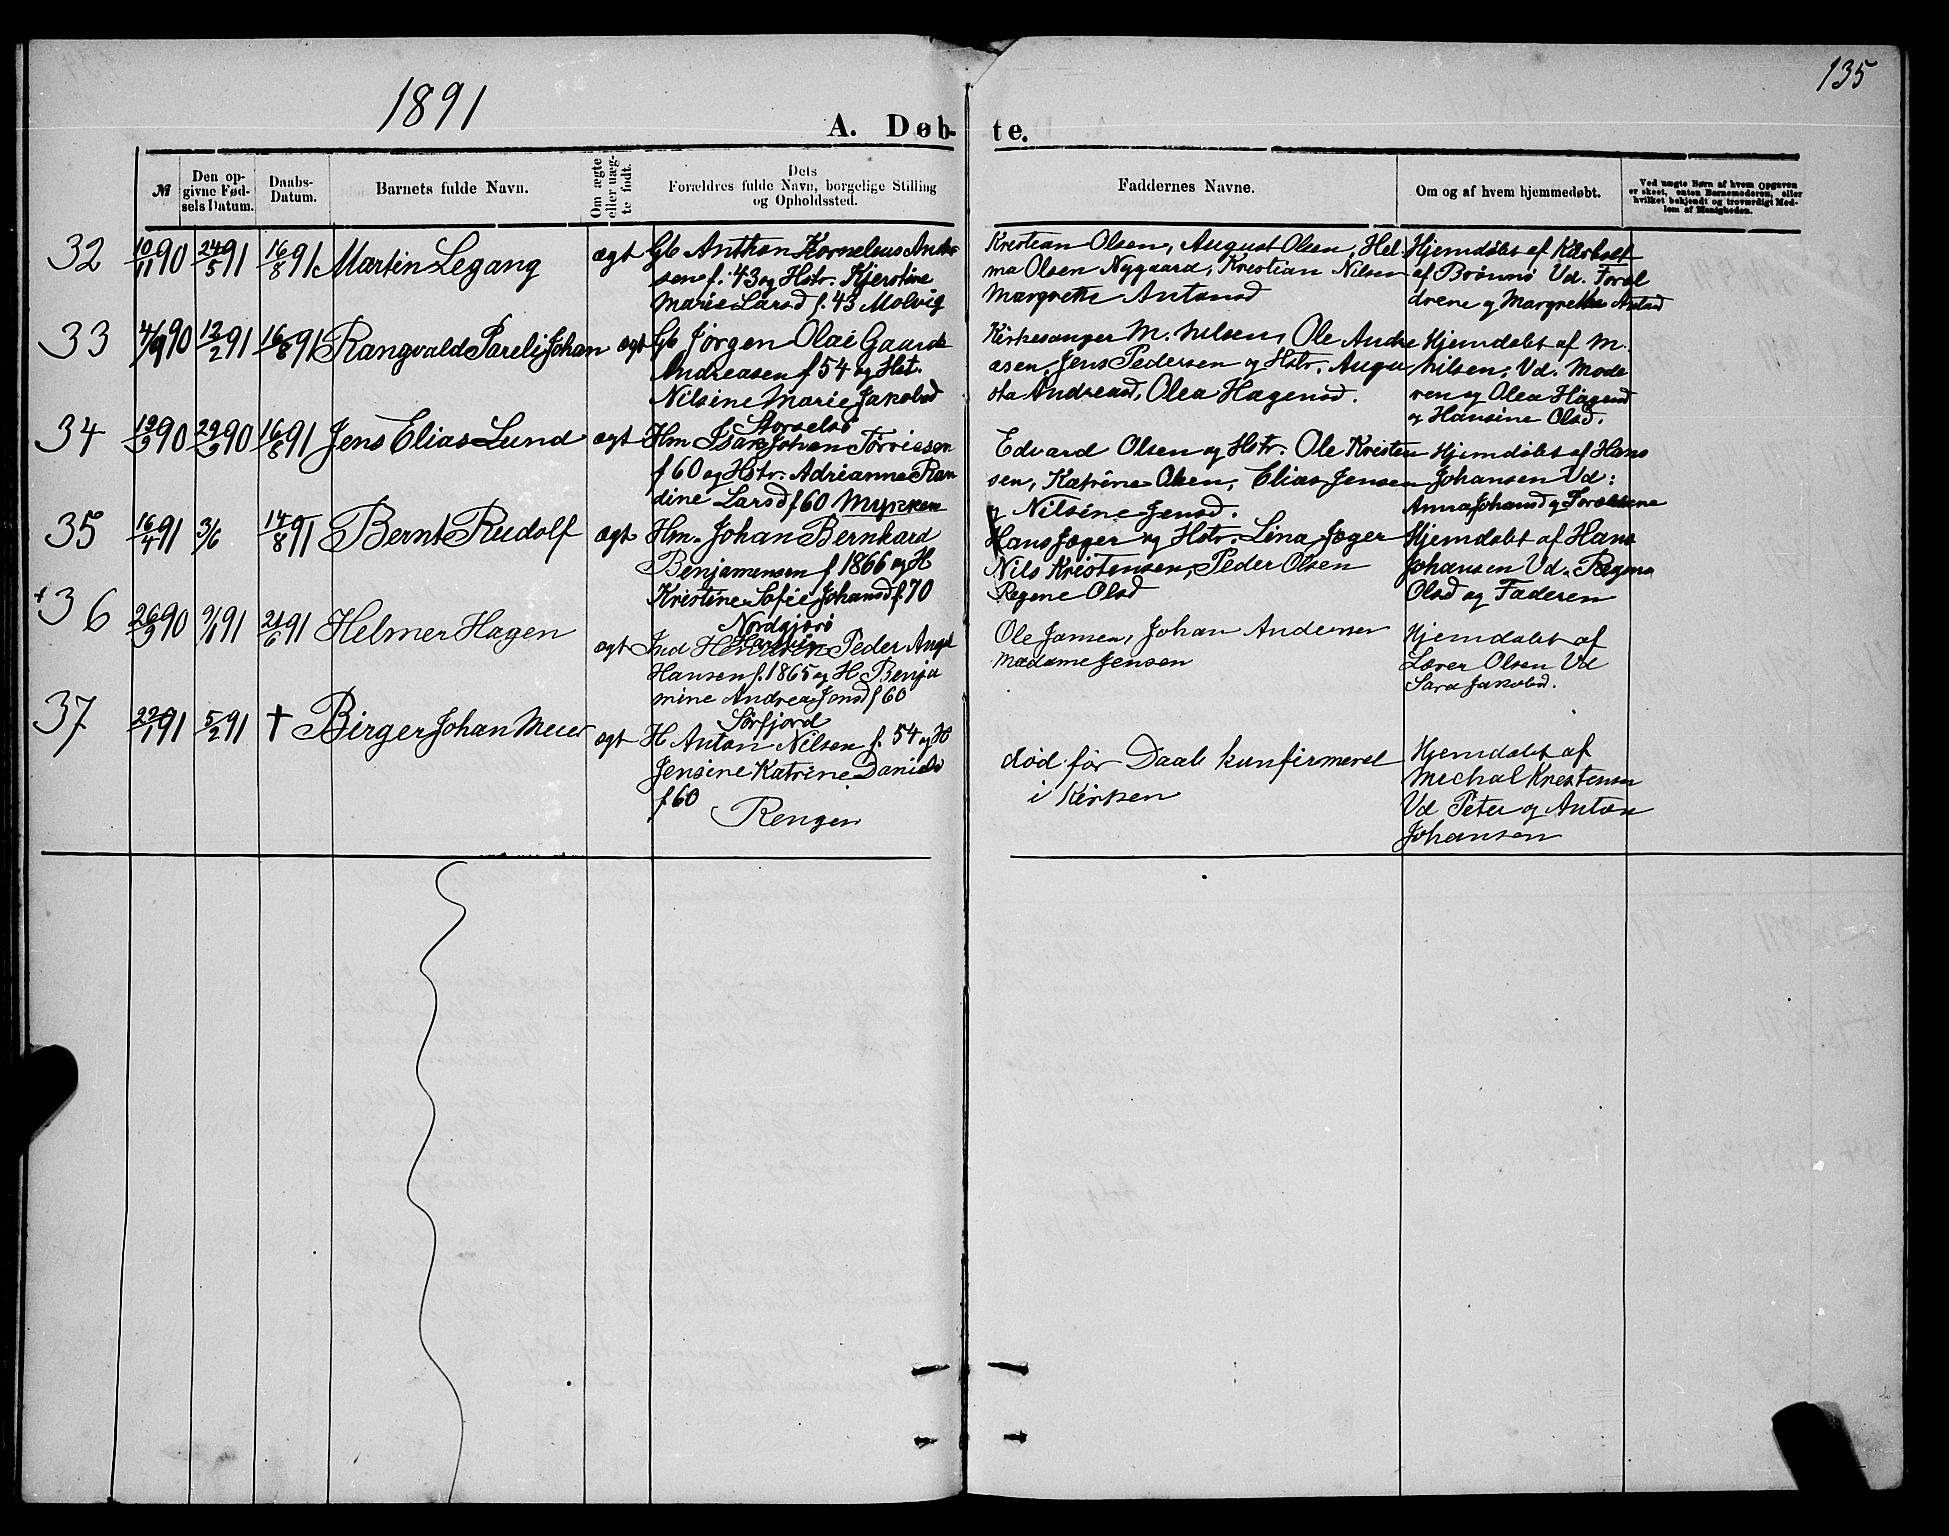 1891
135
A. Døb-
te.
№
Den op-
givne Fød-
sels Datum.
Daabs-
Datum.
Barnets fulde Navn.
Om ægte
eller uæg-
te født.
Dets
Forældres fulde Navn, borgelige Stilling
og Opholdssted.
Faddernes Navne.
Om og af hvem hjemmedøbt.
Ved uægte Børn af hvem Opgaven
er skeet, enten Barnemoderen, eller
hvilket bekjendt og troværdigt Med-
lem af Menigheden.
32 10/11 90 24/5 91 16/8 91 Martin Legang ægt Gb Anthon Kornelius Andr
sen f. 43 og Hstr. Kjerstine
Marie Larsd f. 43 Molvig
Kristian Olsen, August Olsen, Hel
ma Olsen Nygaard, Kristian Nilsen
Margrethe Antonsd
Hjemdøbt af
af Brønnø Vd. Foræl
drene og Margrethe Antsd
33 4/9 90 12/2 91 16/8 91 Rangvald Pareli Johan ægt Gb Jørgen Olai Gaard
Andreasen f 54 og Hst.
Nilsine Marie Jakobsd
Storselsø
Kirkesanger M. Nilsen, Ole Andre
asen, Jens Pedersen og Hstr. Augu
sta Andreasd, Olea Hagensd.
Hjemdøbt af M.
Nilsen, Vd. Mode
ren og Olea Hagensd
og Hansine Olsd.
34 90 90 16/8 91 Jens Elias Lund ægt Hm Isak Johan
f 60 og Hstr. Adrianna Ran
dine Larsd f 60 Mykken
Edvard Olsen og Hstr. Ole Kristen
sen, Katrine Olsen, Elias Jensen
og Nilsine Jensd.
Hjemdøbt af Hans
Johansen Vd:
Anna Johansd og Forældrene
35 16/4 91 3/6 14/8 91 Bernt Rudolf ægt Hm. Johan Bernhard
Benjaminsen f 1866 og H
Kristine Sofie Johansd f. 70
Hans Jæger og Hstr. Lina Jæger
Nils Kristensen, Peder Olsen
Regine Olsd
Hjemdøbt af Hans
Johansen Vd. Regina
Olsd og Faderen
36 26/9 90 91 91 Helmer Hagen ægt Ind Peder Angel
Hansen f. 1865 og H Benja
mine Andrea Jensd f 60
Sørfjord
Ole Jansen, Johan Andersen
Madame Jensen
Hjemdøbt af
Lærer Olsen Vd
Sara Jakobsd.
37 22/1 91 5/2 91 † Birger Johan Meier ægt H Anton Nilsen f. 54 og H
Jensine Katrine Daniels
f 60
Rengen
død før Daab kunfirmeret
i Kirken
Hjemdøbt af
Michal Kristensen
Vd Peter og Anton
Johansen